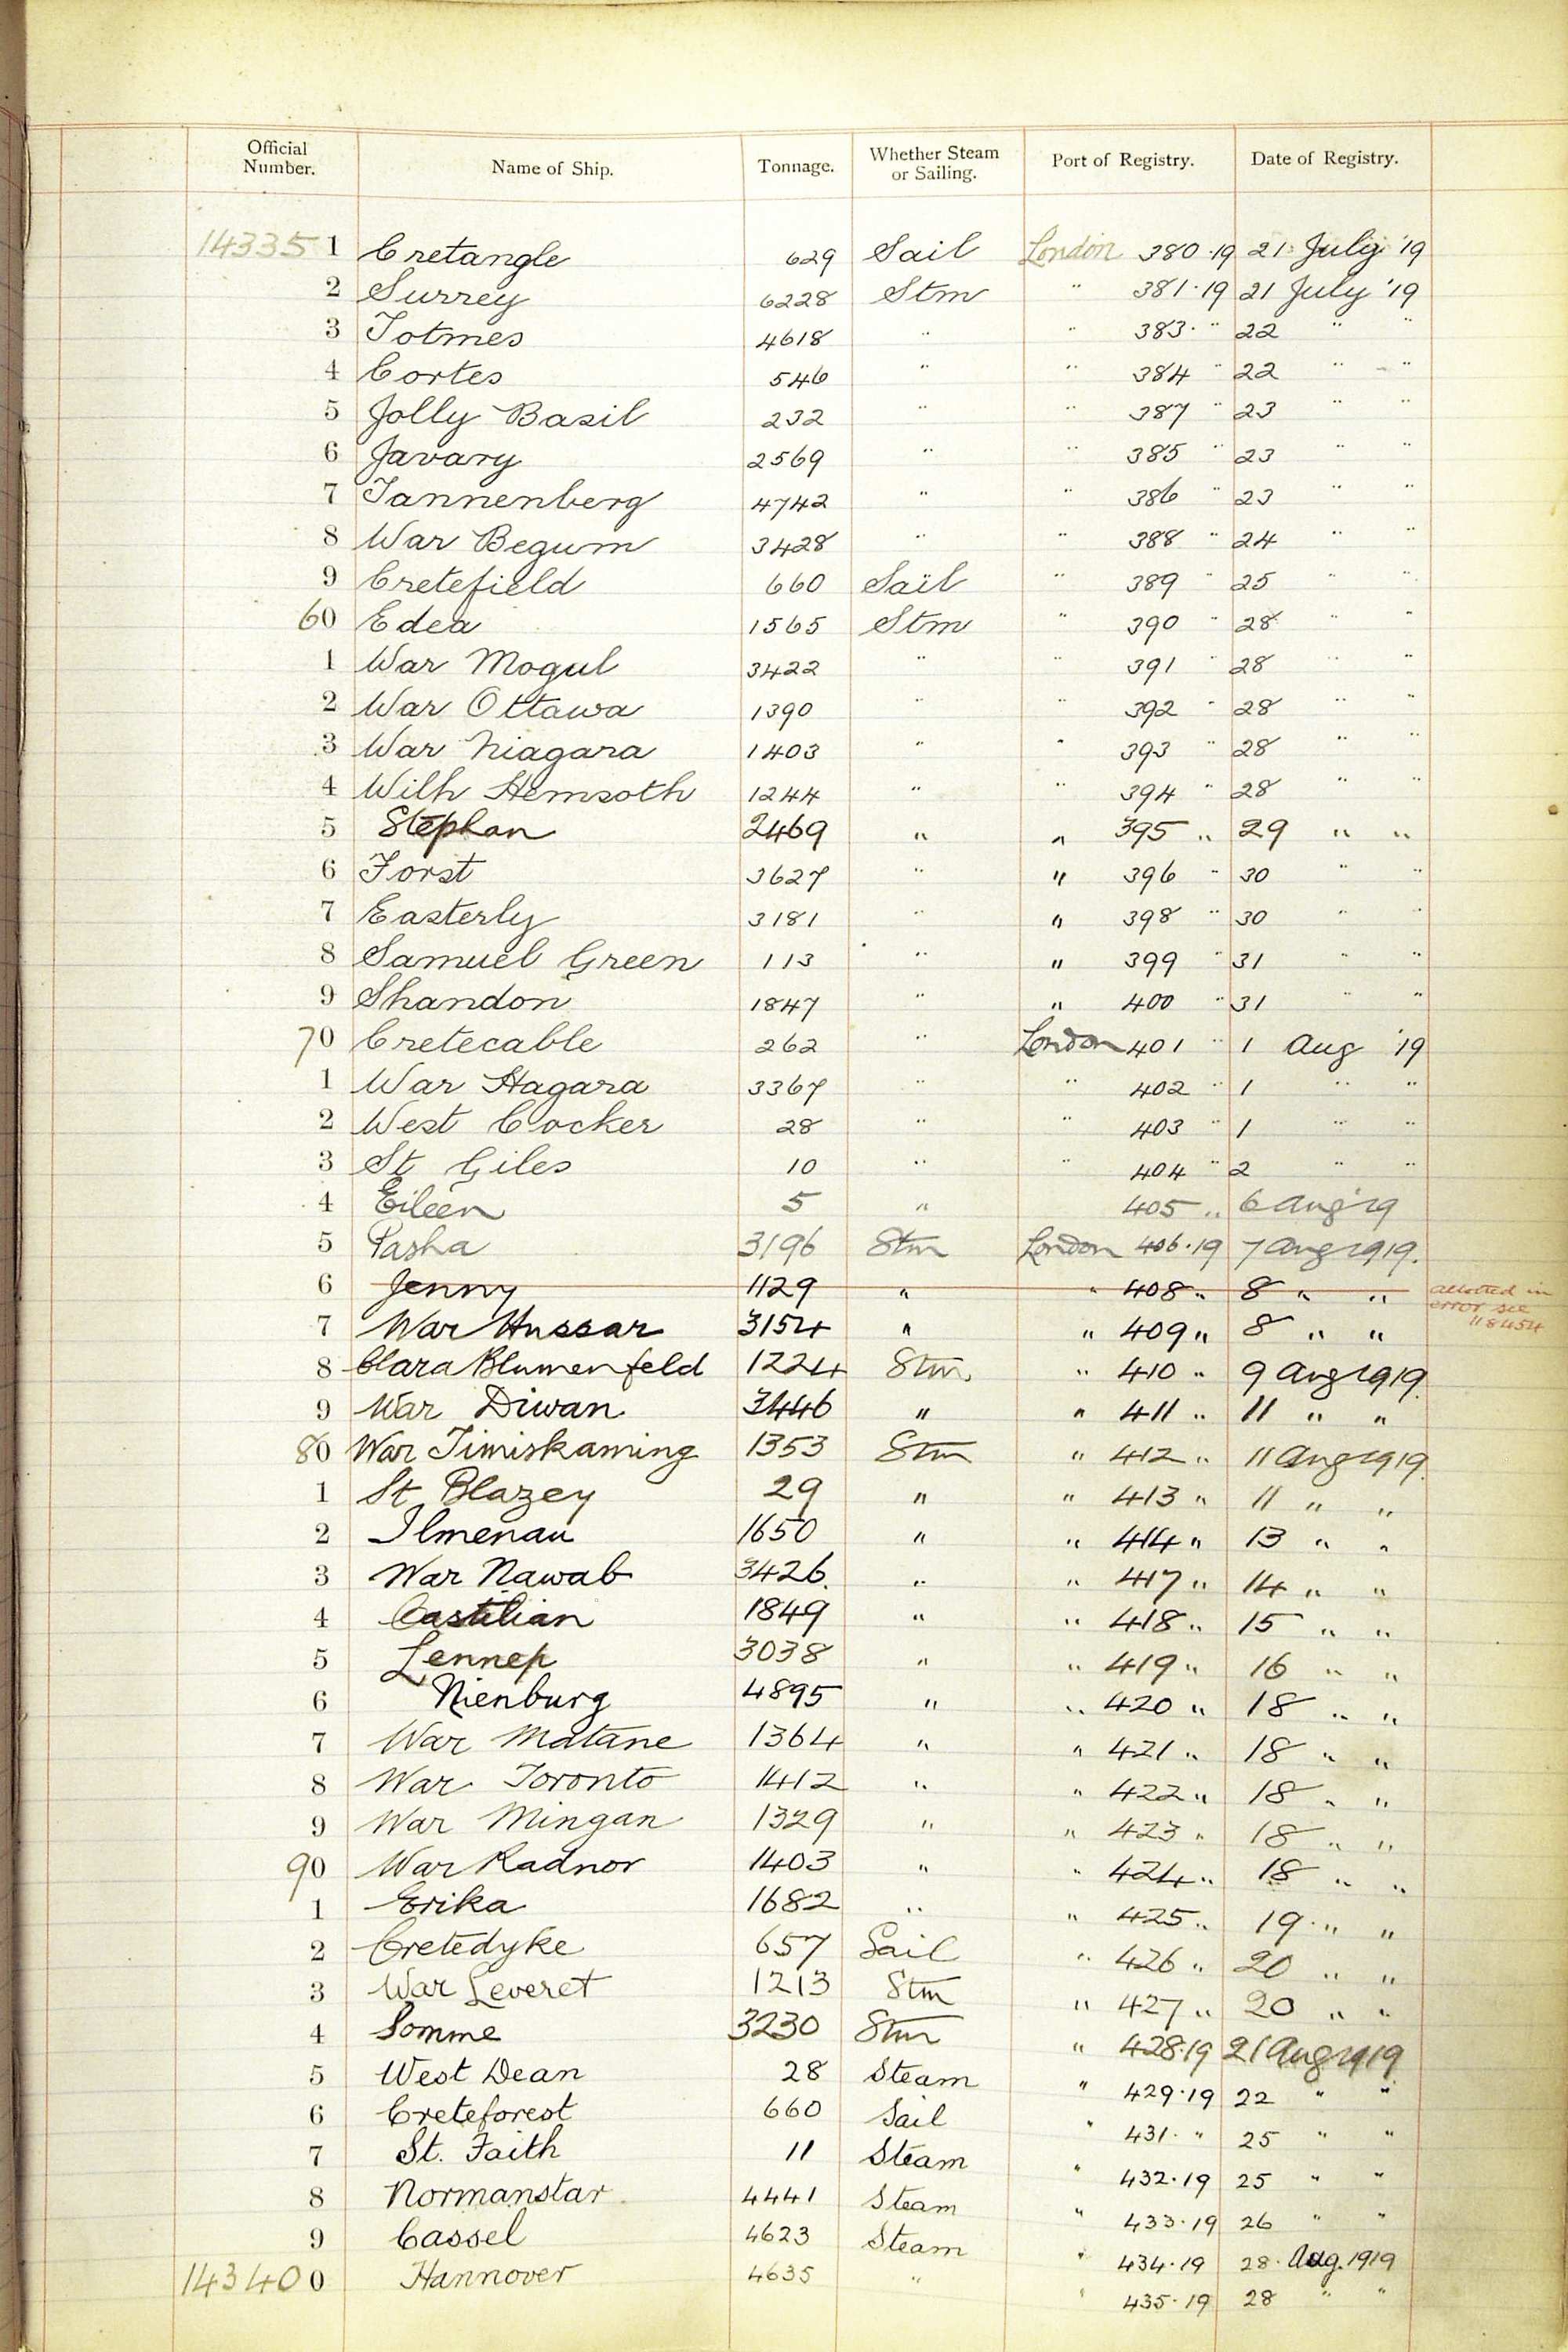 Official Number. Name of Ship. Tonnage. Whether Steam or Sailing. Port of Registry. Date of Registry.
143351 Cretangle 629 Sail London 380·19 21 July '19
2 Surrey 6228 Stm " 381·19 21 July '19
3 Totmes 4618 " " 383· " 22 " "
4 Cortes 546 " " 384 " 22 " "
5 Jolly Basil 232 " " 387 " 23 " "
6 Javary 2569 " " 385 " 23 " "
7 Tannenberg 4742 " " 386 " 23 " "
8 War Begum 3428 " " 388 " 24 " "
9 Cretefield 660 Sail " 389 " 25 " "
60 Edea 1565 Stm " 390 " 28 " "
1 War Mogul 3422 " " 391 " 28 " "
2 War Ottawa 1390 " " 392 " 28 " "
3 War Niagara 1403 " " 393 " 28 " "
4 Wilh Hemsoth 1244 " " 394 " 28 " "
5 Stephan 2469 " " 395 " 29 " "
6 Forst 3627 " " 396 " 30 " "
7 Easterly 3181 " " 398 " 30 " "
8 Samuel Green 113 " " 399 " 31 " "
9 Shandon 1847 " " 400 " 31 " "
70 Cretecable 262 " London 401 " 1 Aug '19
1 War Hagara 3367 " " 402 " 1 " "
2 West Cocker 28 " " 403 " 1 " "
3 St Giles 10 " " 404 " 2 " "
4 Eileen 5 " 405 " 6 Aug '19
5 Pasha 3196 Stm London 406·19 7 Aug 1919.
6 Jenny 1129 " " 408 " 8 " " allotted in error see 118454
7 War Hussar 3154 " " 409 " 8 " "
8 Clara Blumenfeld 1224 Stm " 410 " 9 Aug 1919
9 War Diwan 3446 " " 411 " 11 " "
80 War Timiskaming 1353 Stm " 412 " 11 Aug 1919
1 St Blazey 29 " " 413 " 11 " "
2 Ilmenau 1650 " " 414 " 13 " "
3 War Nawab 3426 " " 417 " 14 " "
4 Castilian 1849 " " 418 " 15 " "
5 Lennep 3038 " " 419 " 16 " "
6 Nienburg 4895 " " 420 " 18 " "
7 War Matane 1364 " " 421 " 18 " "
8 War Toronto 1412 " " 422 " 18 " "
9 War Mingan 1329 " " 423 " 18 " "
90 War Radnor 1403 " " 424 " 18 " "
1 Erika 1682 " " 425 " 19 " "
2 Cretedyke 657 Sail " 426 " 20 " "
3 War Leveret 1213 Stm " 427 " 20 " "
4 Somme 3230 Stm " 428·19 21 Aug 1919
5 West Dean 28 Steam " 429·19 22 " "
6 Creteforest 660 Sail " 431· " 25 " "
7 St. Faith 11 Steam " 432·19 25 " "
8 Normanstar 4441 Steam " 433·19 26 " "
9 Cassel 4623 Steam " 434·19 28· Aug. 1919
143400 Hannover 4635 " " 435·19 28 " "